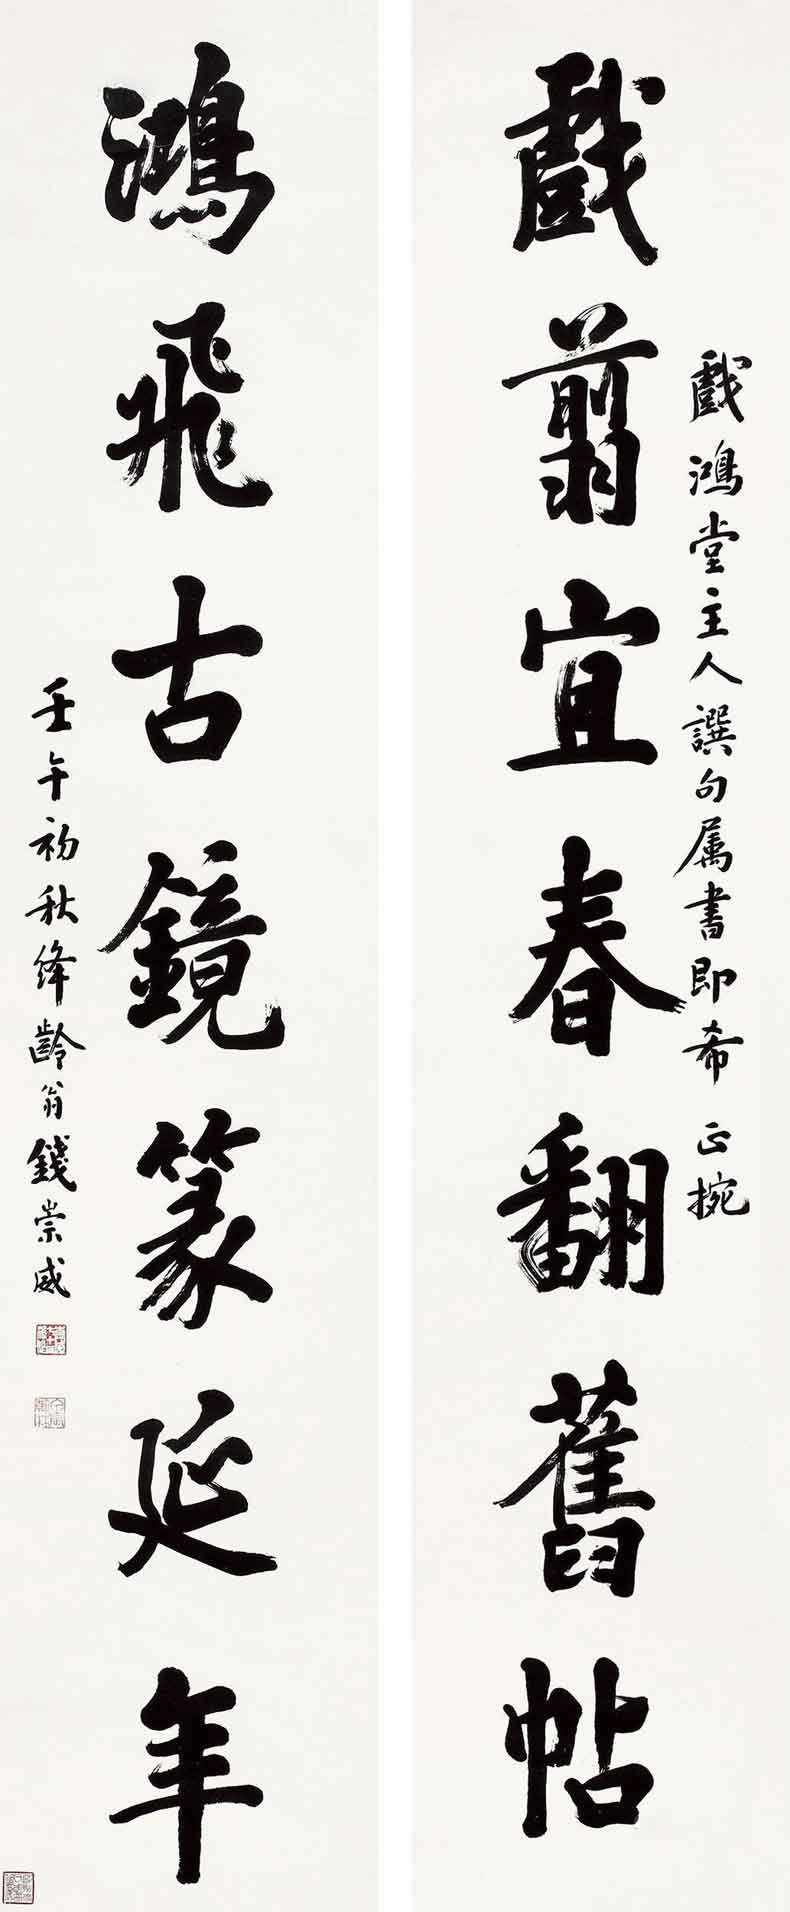 戲翦宜春翻舊帖
戲鴻堂主人譔句属書即希 正捥
鴻飛古鏡篆延年
壬午初秋绛齡翁錢崇威